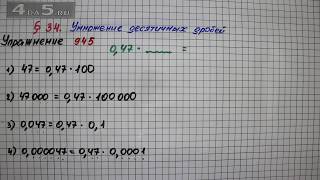 4DA5.RU
§ 34. Умножение десятичных дробей
Упражнение 945
0,47 · =
1) 47 = 0,47 · 100
2) 47 000 = 0,47 · 100 000
3) 0,047 = 0,47 · 0,1
4) 0,000047 = 0,47 · 0,0001